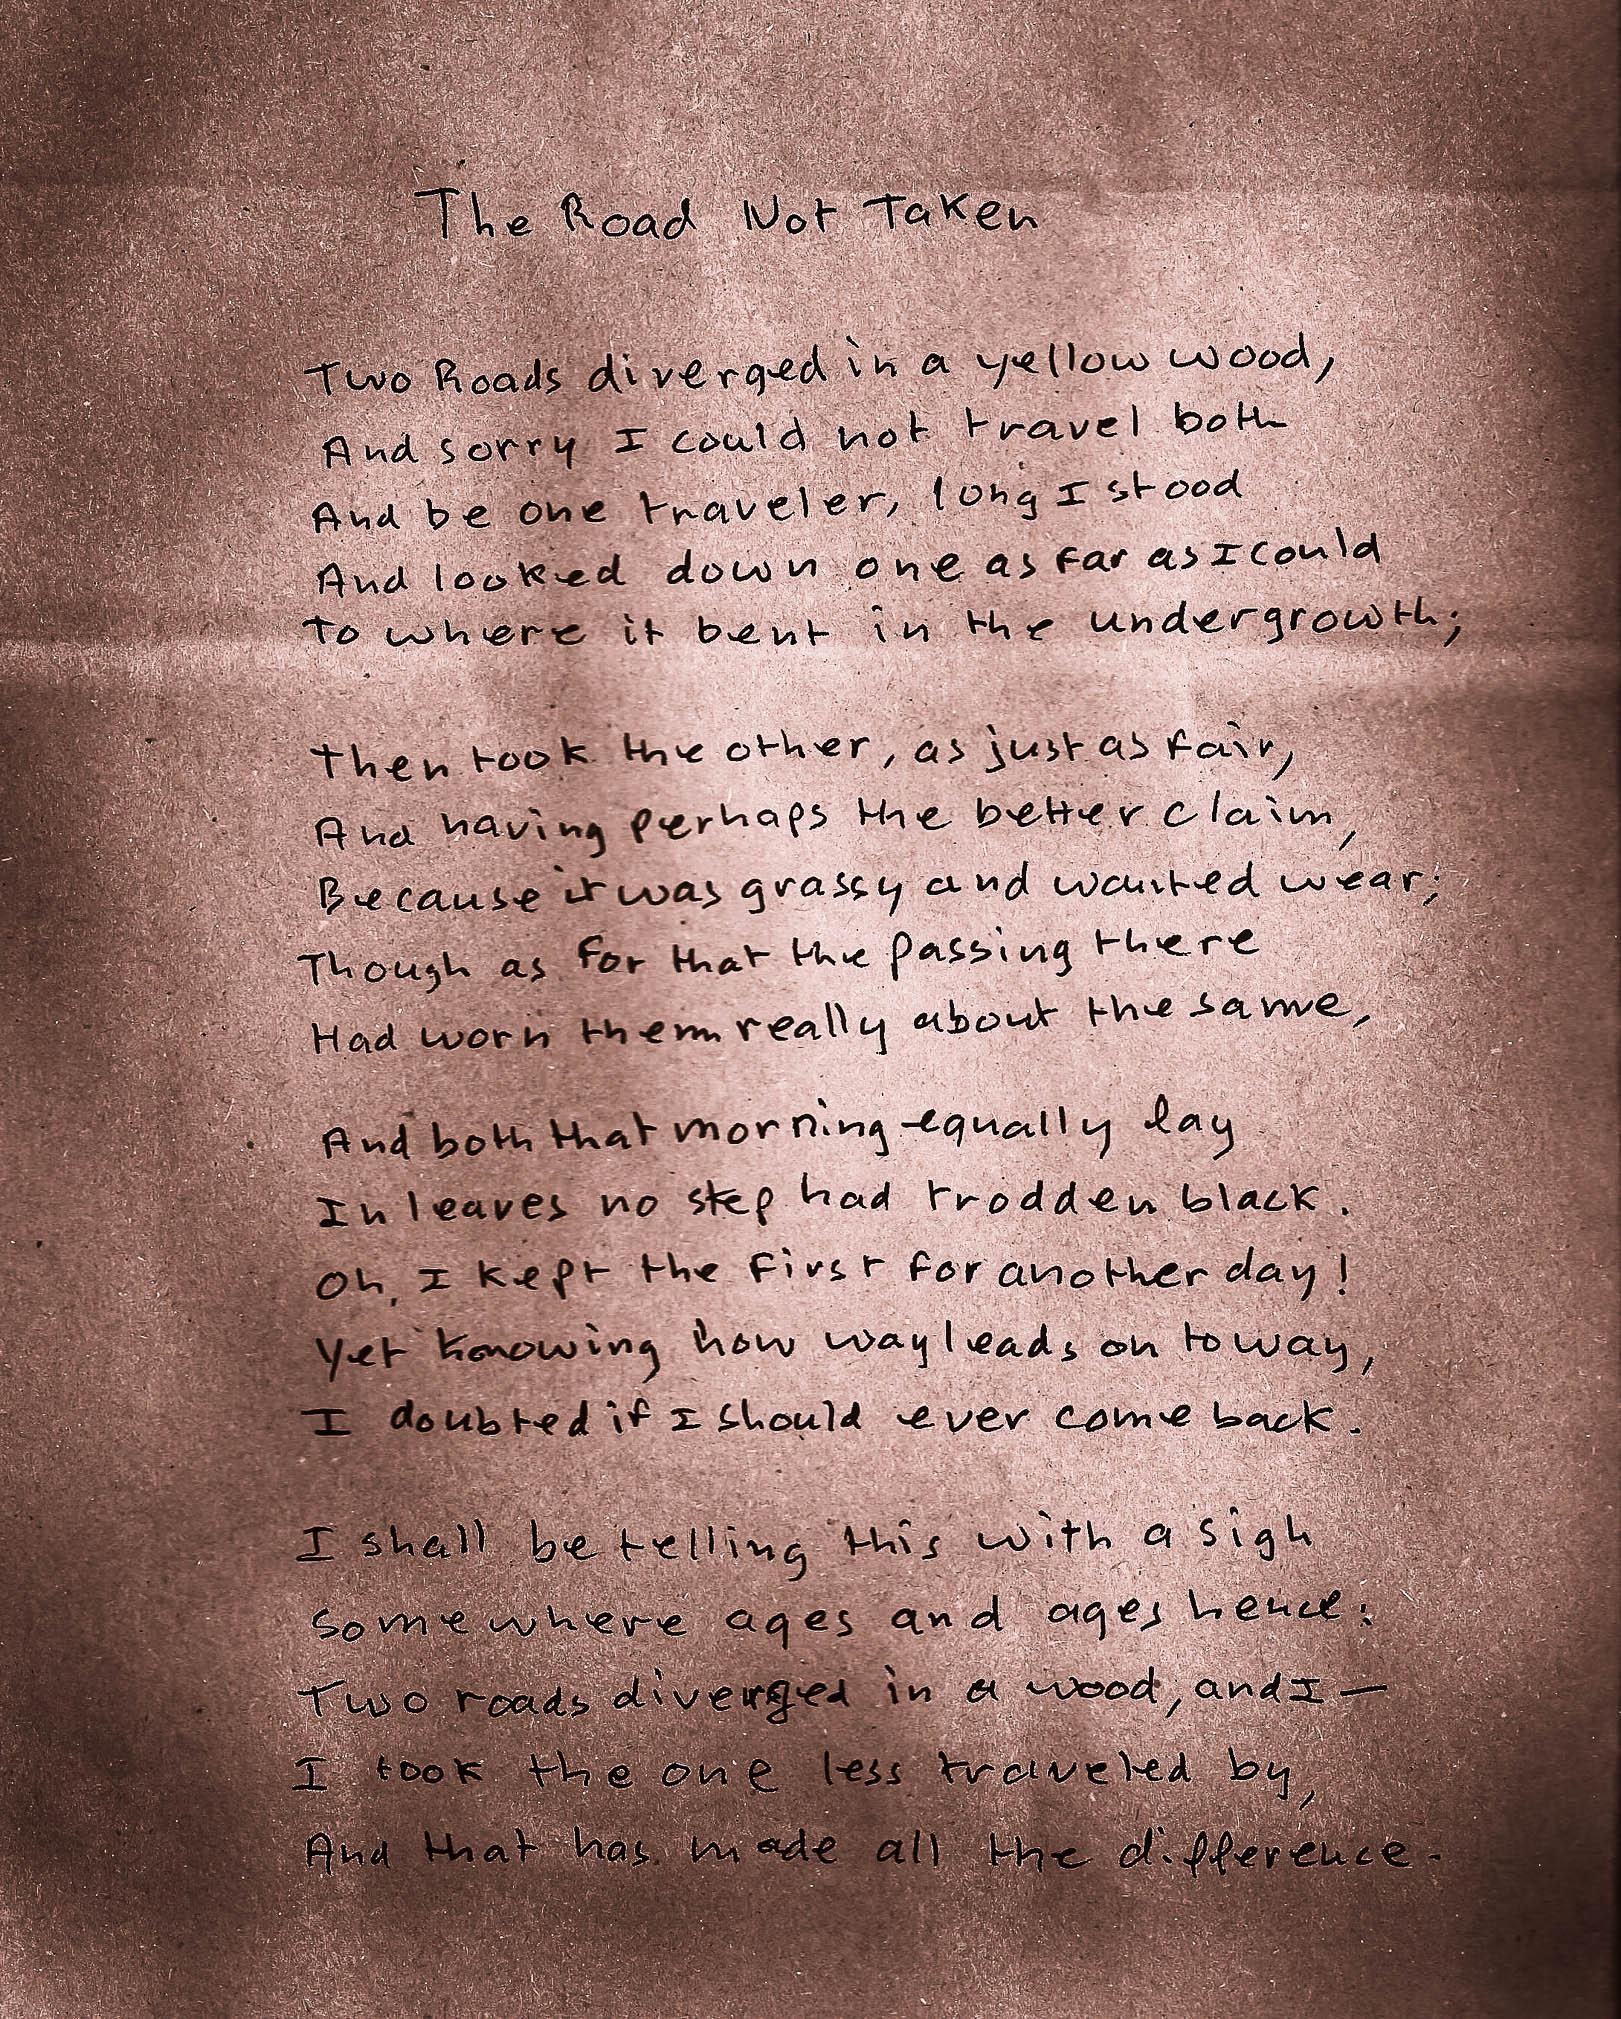 The Road Not Taken
Two Roads diverged in a yellow wood,
And sorry I could not travel both
And be one traveler, long I stood
And looked down one as far as I could
To where it bent in the undergrowth;
Then took the other, as just as fair,
And having perhaps the better claim,
Because it was grassy and wanted wear;
Though as for that the passing there
Had worn them really about the same,
And both that morning equally lay
In leaves no step had trodden black.
Oh, I kept the first for another day!
Yet knowing how way leads on to way,
I doubted if I should ever come back.
I shall be telling this with a sigh
Somewhere ages and ages hence:
Two roads diverged in a wood, and I —
I took the one less traveled by,
And that has made all the difference.